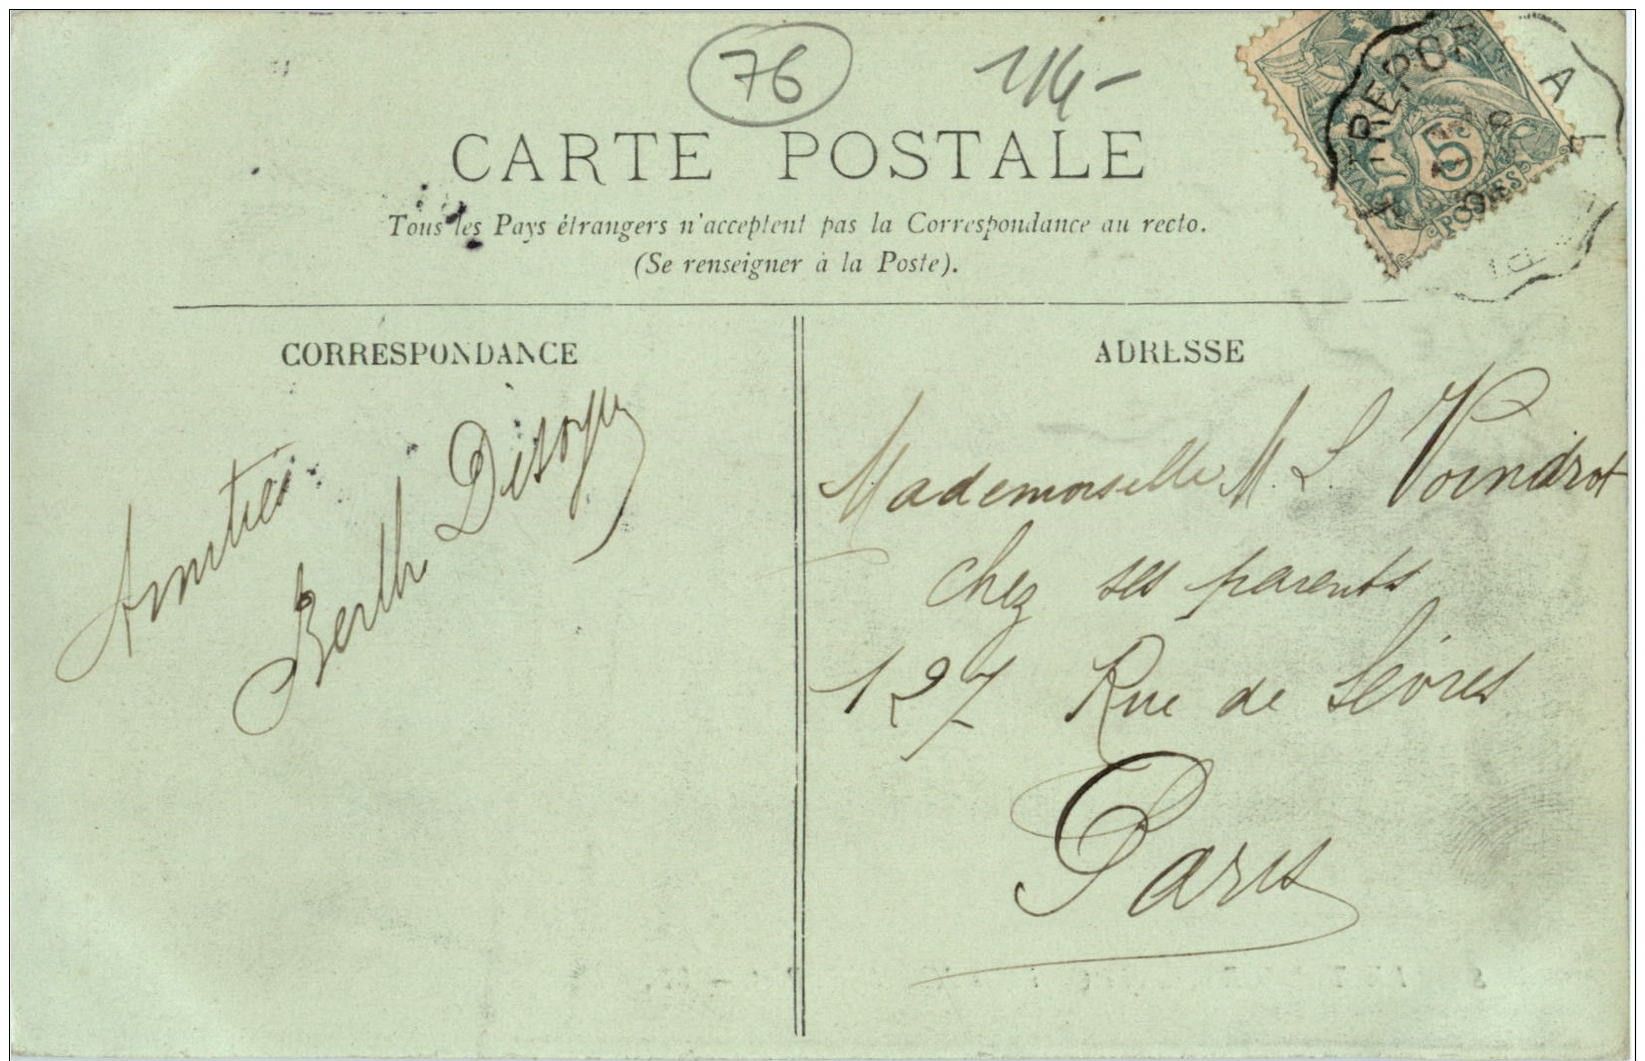 76
14-
CARTE POSTALE
Tous les Pays étrangers n'acceptent pas la Correspondance au recto.
(Se renseigner à la Poste).
TREPORT A
5c
POSTES
CORRESPONDANCE
Amitiés
Berthe
ADRESSE
Mademoiselle M. L. Voindrot
chez ses parents
127 Rue de Sèvres
Paris